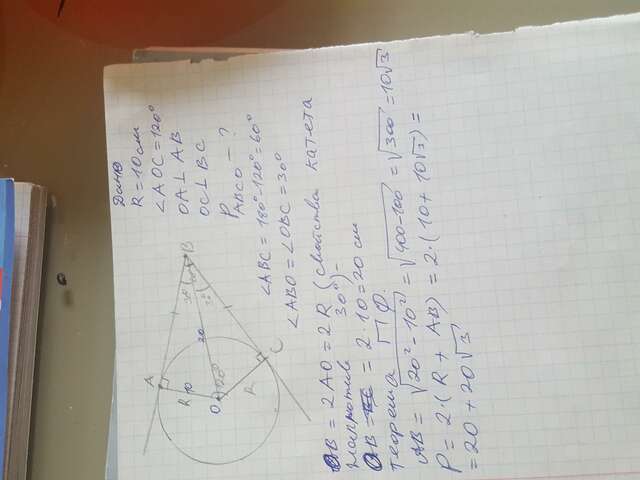 Дано
R = 10 см
∠AOC = 120°
OA ⊥ AB
OC ⊥ BC
P ABCO — ?
A
R
10
O
120°
R
C
20
30°
30°
B
∠ABC = 180° - 120° = 60°
∠ABO = ∠OBC = 30°
OB = 2AO = 2R (свойства катета
напротив 30°) -
OB = 2 · 10 = 20 см
теорема П Ф.
AB = √20² - 10² = √400-100 = √300 = 10√3
P = 2·(R + AB) = 2·(10 + 10√3) =
= 20 + 20√3